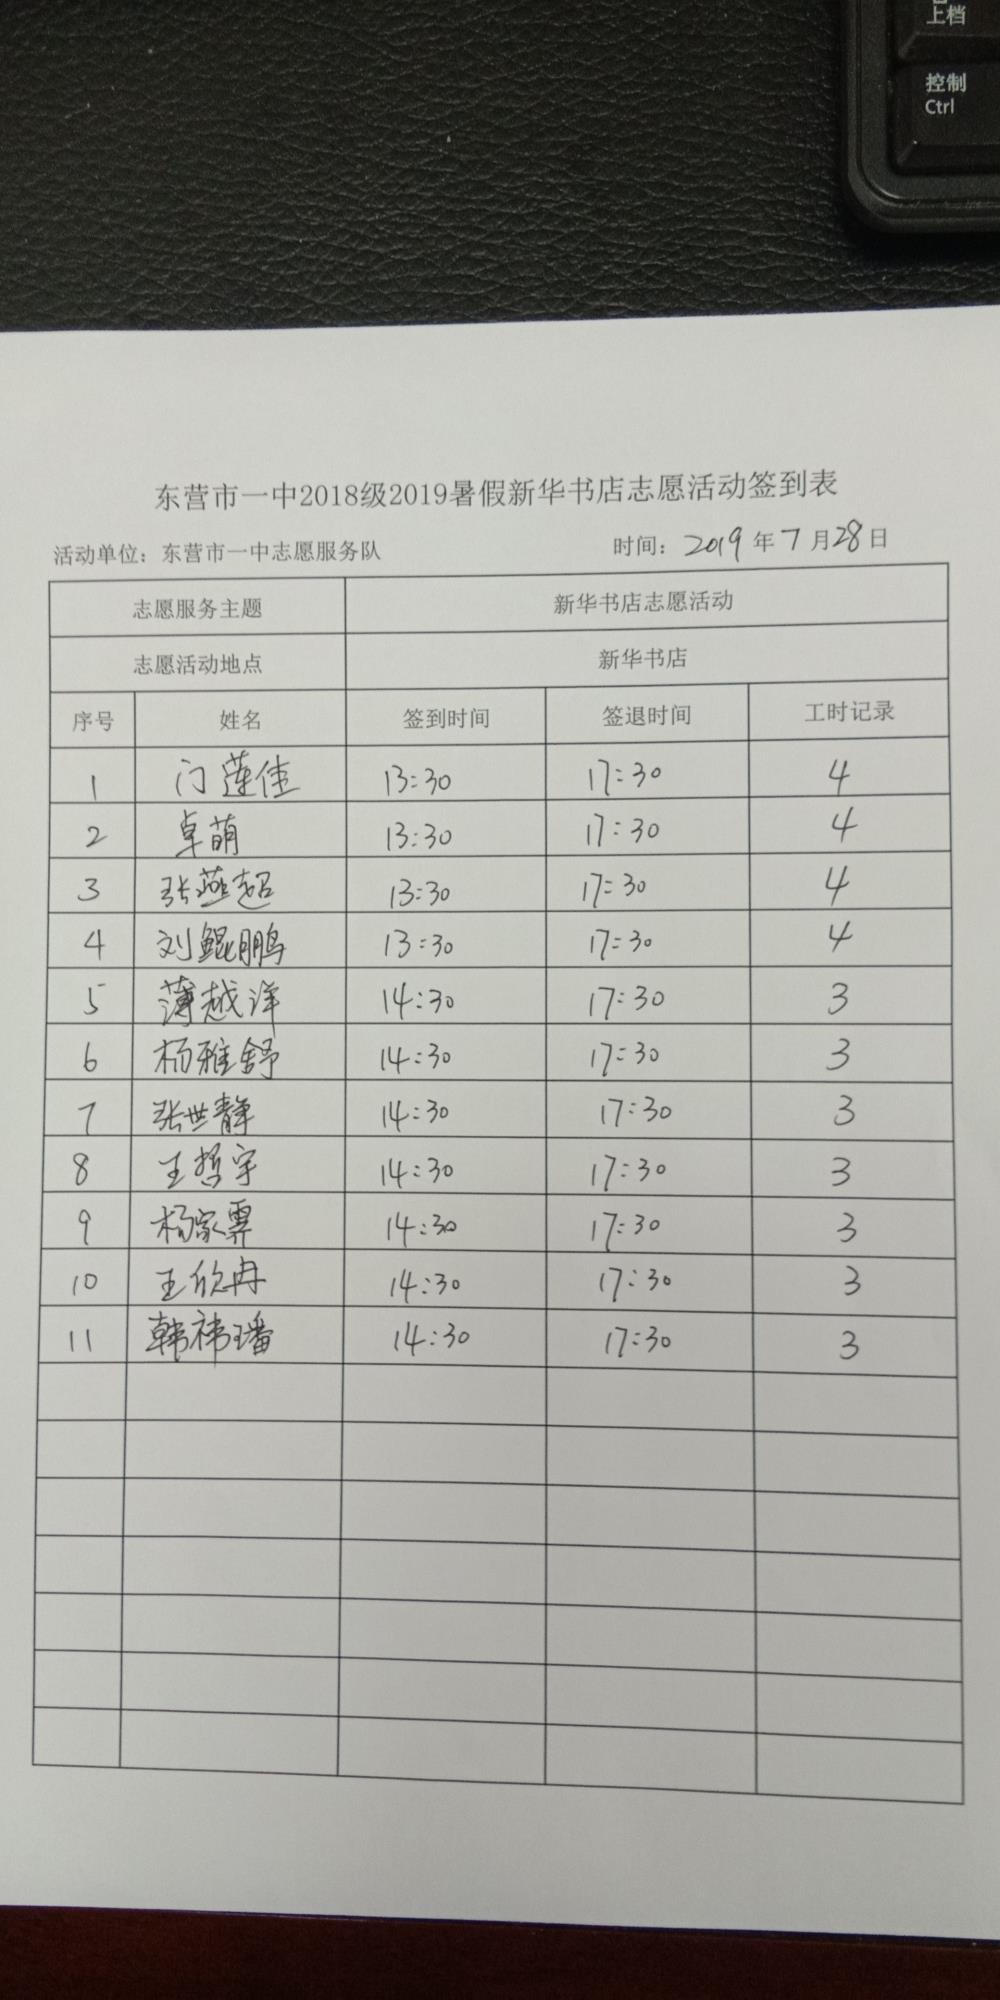 上档
控制
Ctrl
东营市一中2018级2019暑假新华书店志愿活动签到表
活动单位：东营市一中志愿服务队 时间：2019年7月28日
志愿服务主题 新华书店志愿活动
志愿活动地点 新华书店
序号 姓名 签到时间 签退时间 工时记录
1 门莲佳 13:30 17:30 4
2 卓萌 13:30 17:30 4
3 张燕超 13:30 17:30 4
4 刘鲲鹏 13:30 17:30 4
5 薄越洋 14:30 17:30 3
6 杨雅舒 14:30 17:30 3
7 张世静 14:30 17:30 3
8 王哲宇 14:30 17:30 3
9 杨家霁 14:30 17:30 3
10 王欣冉 14:30 17:30 3
11 韩祎璠 14:30 17:30 3